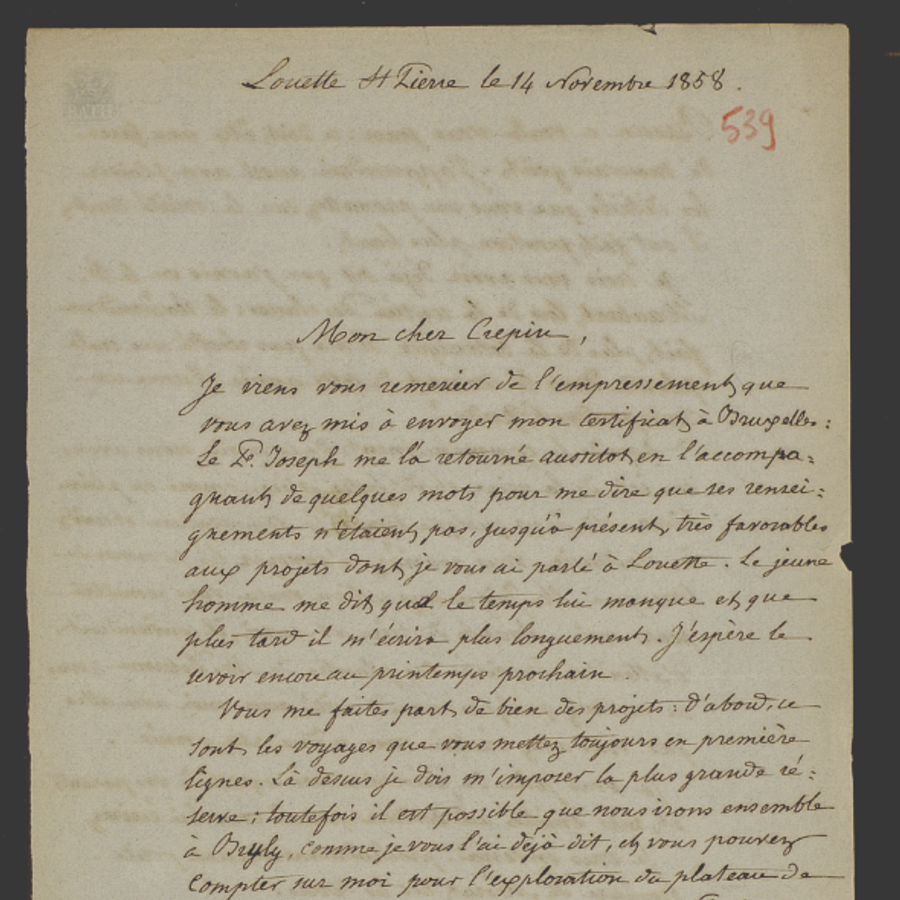 Louette St Pierre le 14 Novembre 1858.
539
Mon cher Crepin,
Je viens vous remercier de l'empressement que
vous avez mis à envoyer mon certificat à Bruxelles:
Le P. Joseph me l'a retourné aussitot en l'accompa=
gnant de quelques mots pour me dire que ses rensei=
gnements n'étaient pas, jusqu'à présent, très favorables
aux projets dont je vous ai parlé à Louette. Le jeune
homme me dit que le temps lui manque et que
plus tard il m'écrira plus longuement. J'espère le
revoir encore au printemps prochain.
Vous me faites part de bien des projets: d'abord, ce
sont les voyages que vous mettez toujours en première
lignes. Là dessus je dois m'imposer la plus grande ré=
serve; toutefois il est possible que nous irons ensemble
à Bruly, comme je vous l'ai déjà dit, et vous pourrez
compter sur moi pour l'exploration du plateau de